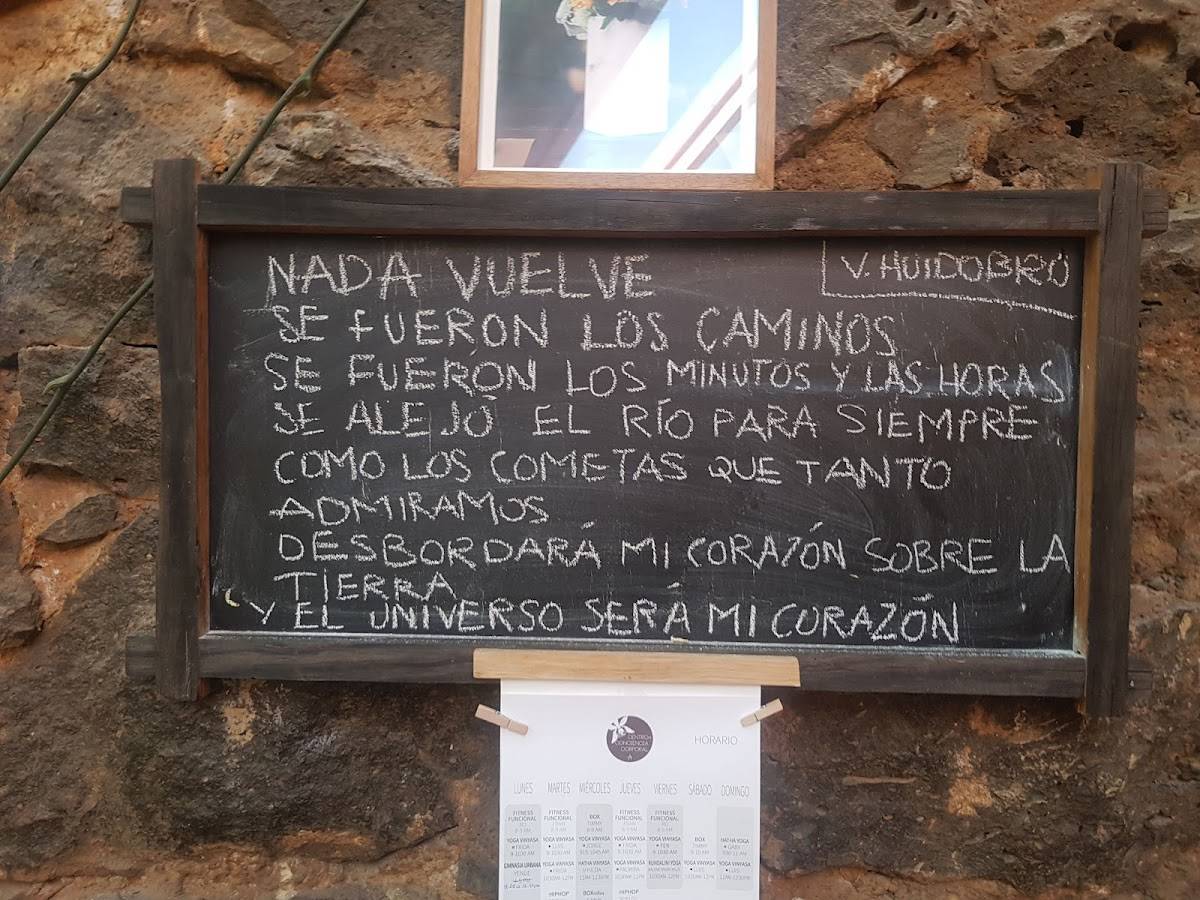 NADA VUELVE
V. HUIDOBRO
SE FUERON LOS CAMINOS
SE FUERON LOS MINUTOS Y LAS HORAS
SE ALEJÓ EL RÍO PARA SIEMPRE
COMO LOS COMETAS QUE TANTO
ADMIRAMOS
DESBORDARÁ MI CORAZÓN SOBRE LA
TIERRA
Y EL UNIVERSO SERÁ MI CORAZÓN
CENTRO
CONCIENCIA
CORPORAL
HORARIO
LUNES MARTES MIÉRCOLES JUEVES VIERNES SÁBADO DOMINGO
FITNESS FITNESS BOX FITNESS FITNESS
FUNCIONAL FUNCIONAL FUNCIONAL FUNCIONAL
YOGA VINYASA YOGA VINYASA YOGA VINYASA YOGA VINYASA YOGA VINYASA BOX HATHA YOGA
GIMNASIA URBANA YOGA VINYASA HATHA VINYASA YOGA VINYASA KUNDALINI YOGA YOGA VINYASA YOGA VINYASA
HIPHOP HIPHOP